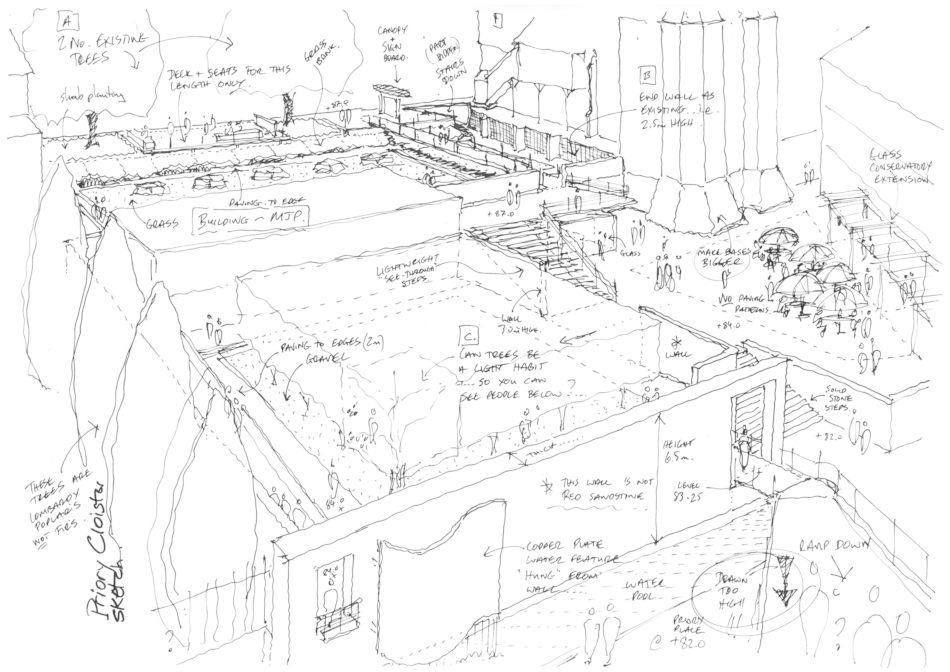 A
2 NO. EXISTING
TREES
shrub planting
DECK + SEATS FOR THIS
LENGTH ONLY.
GRASS
BANK.
CANOPY
+
SIGN
BOARD.
PART
HIDDEN
STAIRS
DOWN
+87.0
B
END WALL AS
EXISTING.. i.e.
2.5m HIGH.
GLASS
CONSERVATORY
EXTENSION
PAVING TO EDGE
GRASS
BUILDING - MJP.
+87.0
GLASS
MAKE BASES
BIGGER
NO PAVING
PATTERNS.
+84.0
LIGHTWEIGHT
"SEE-THROUGH"
STEPS.
WALL
7.0m HIGH.
PAVING TO EDGES (2m)
GRAVEL
C.
CAN TREES BE
A LIGHT HABIT
.... SO YOU CAN
SEE PEOPLE BELOW... ?
*
WALL
SOLID
STONE
STEPS.
+82.0
THICK
HEIGHT
6.5m.
* THIS WALL IS NOT
RED SANDSTONE
LEVEL
83.25
THESE
TREES ARE
LOMBARDY
POPLARS
NOT FIRS.
84.0
x
Priory Cloister
sketch.
COPPER PLATE
WATER FEATURE
"HUNG" FROM
WALL
WATER
POOL
DRAWN
TOO
HIGH
RAMP DOWN
PRIORY
PLACE
@ +82.0